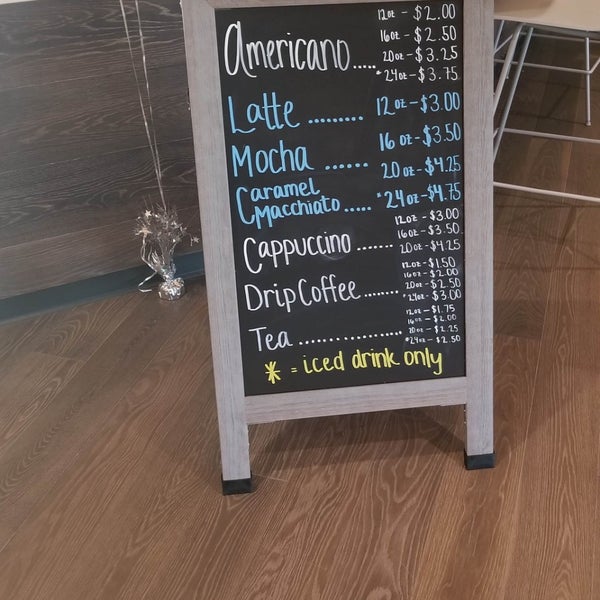 Americano..... 12oz - $2.00
16oz - $2.50
20oz - $3.25
*24oz - $3.75
Latte ......... 12oz - $3.00
Mocha ...... 16oz - $3.50
20oz - $4.25
Caramel Macchiato..... *24oz - $4.75
Cappuccino ....... 12oz - $3.00
16oz - $3.50
20oz - $4.25
Drip Coffee........ 12oz - $1.50
16oz - $2.00
20oz - $2.50
*24oz - $3.00
Tea ............... 12oz - $1.75
16oz - $2.00
20oz - $2.25
*24oz - $2.50
* = iced drink only